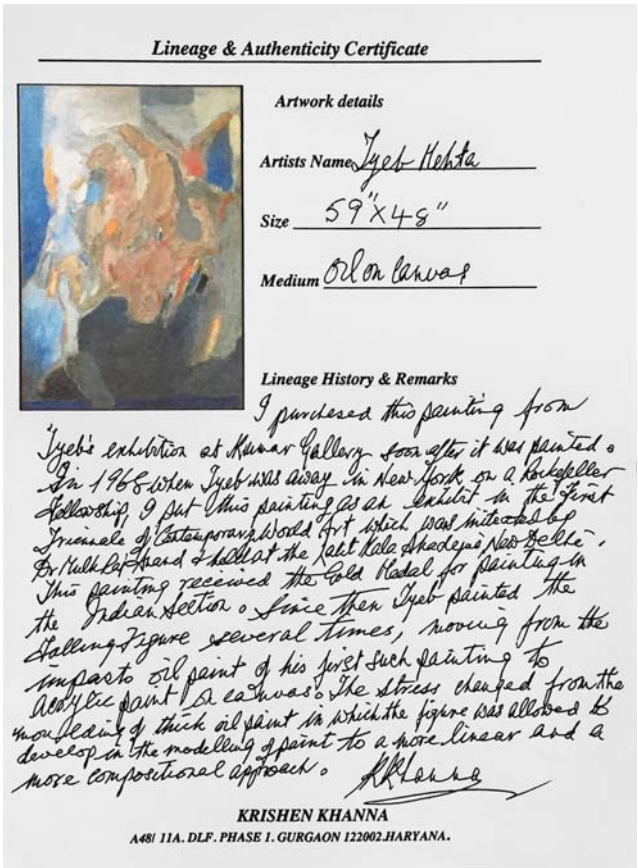 Lineage & Authenticity Certificate
Artwork details
Artists Name Tyeb Mehta
Size 59"X48"
Medium Oil on Canvas
Lineage History & Remarks
I purchased this painting from
Tyeb's exhibition at Kumar Gallery soon after it was painted.
In 1968 when Tyeb was away in New York on a Rockefeller
Fellowship, I put this painting as an exhibit in the First
Triennale of Contemporary World Art which was initiated by
Dr Mulk Raj Anand & held at the Lalit Kala Akademi New Delhi.
This painting received the Gold Medal for painting in
the Indian Section. Since then Tyeb painted the
Falling Figure several times, moving from the
impasto oil paint of his first such painting to
acrylic paint on canvas. The stress changed from the
moulding of thick oil paint in which the figure was allowed to
develop in the modelling of paint to a more linear and a
more compositional approach. KKhanna
KRISHEN KHANNA
A48/ 11A. DLF. PHASE 1. GURGAON 122002.HARYANA.